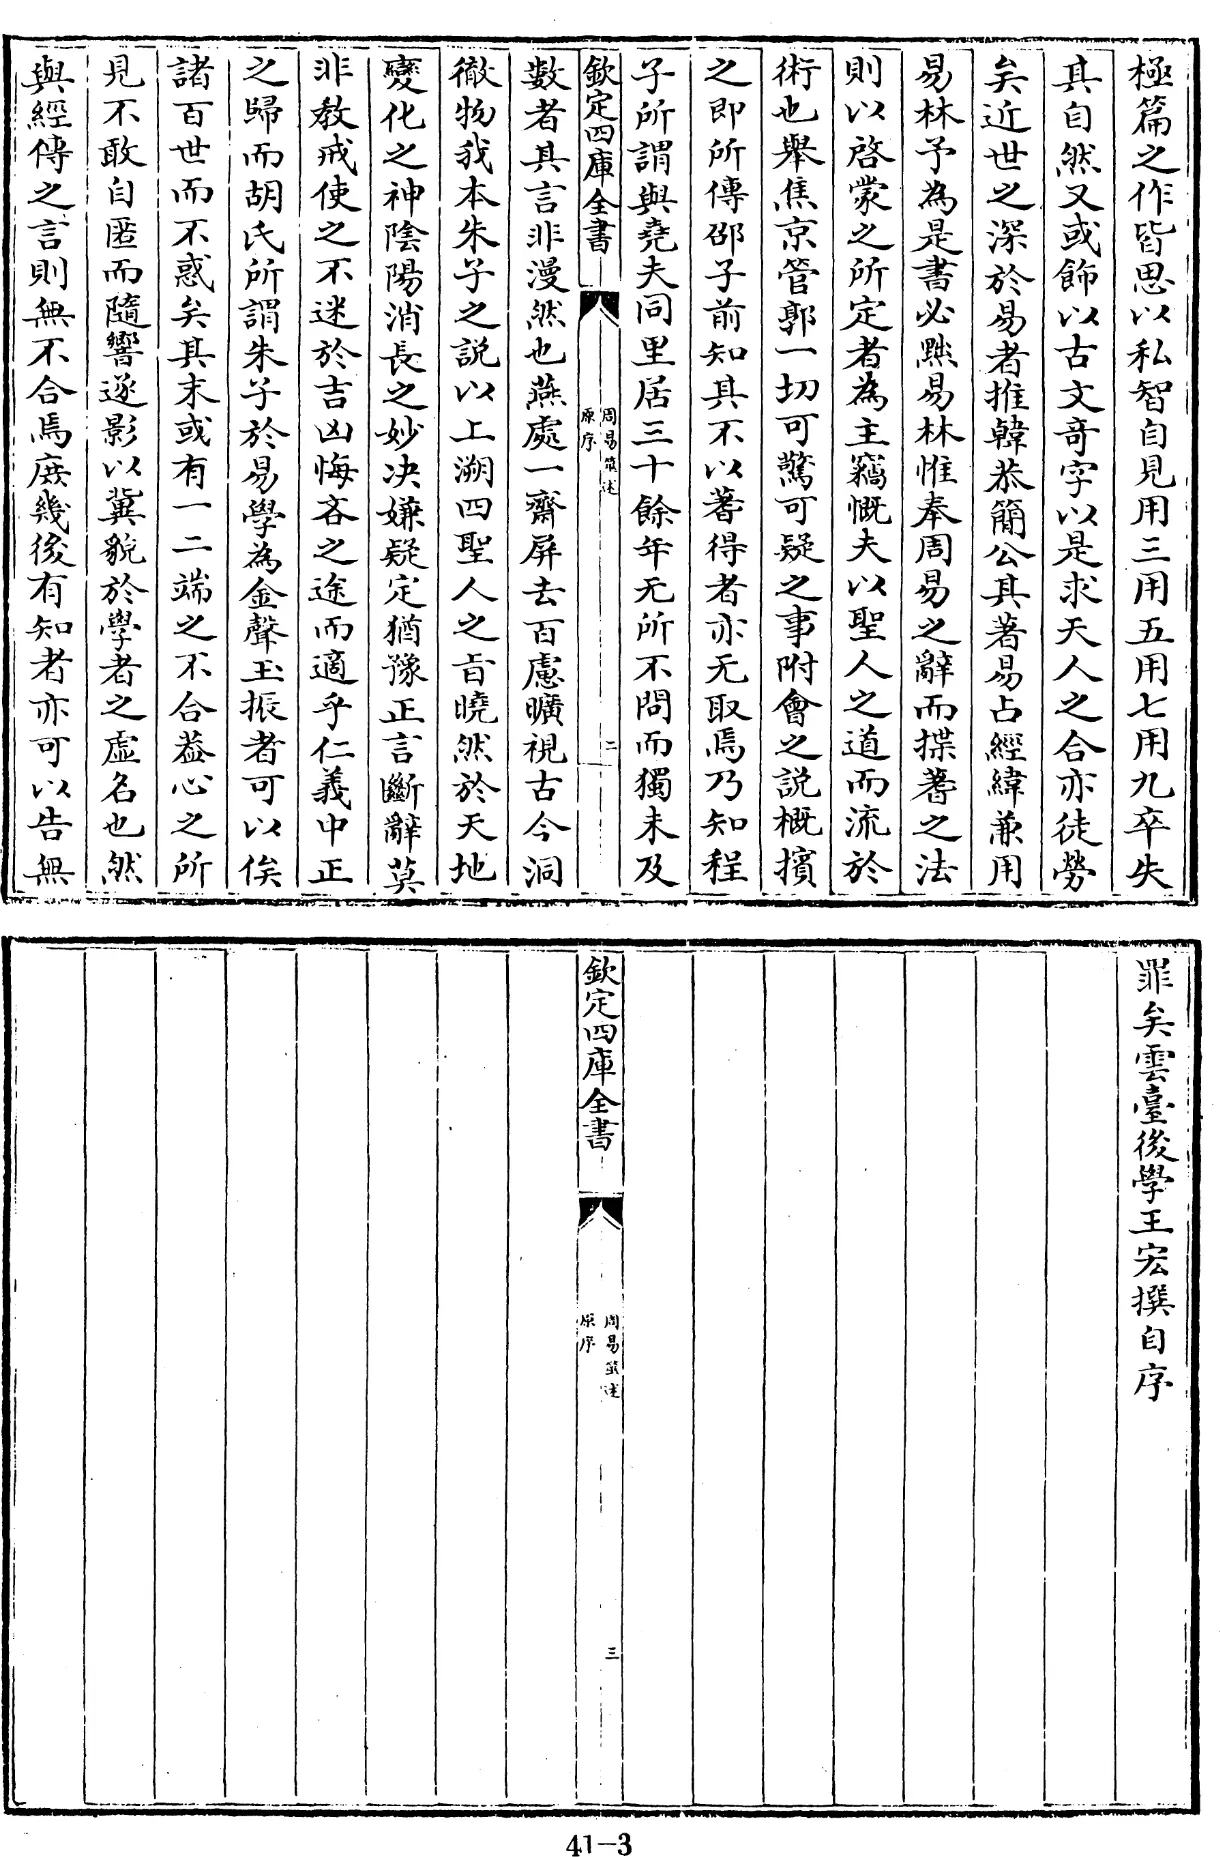 極篇之作皆思以私智自見用三用五用七用九卒失
其自然又或飾以古文奇字以是求天人之合亦徒勞
矣近世之深於易者推韓恭簡公其著易占經緯兼用
易林予為是書必黜易林惟奉周易之辭而揲蓍之法
則以啓蒙之所定者為主竊慨夫以聖人之道而流於
術也舉焦京管郭一切可驚可疑之事附會之說概擯
之即所傳邵子前知其不以蓍得者亦无取焉乃知程
子所謂與堯夫同里居三十餘年无所不問而獨未及
欽定四庫全書
周易筮述
原序
二
數者其言非漫然也燕處一齋屏去百慮曠視古今洞
徹物我本朱子之說以上溯四聖人之旨曉然於天地
變化之神陰陽消長之妙决嫌疑定猶豫正言斷辭莫
非教戒使之不迷於吉凶悔吝之途而適乎仁義中正
之歸而胡氏所謂朱子於易學為金聲玉振者可以俟
諸百世而不惑矣其末或有一二端之不合葢心之所
見不敢自匿而隨響逐影以冀貌於學者之虛名也然
與經傳之言則無不合焉庶幾後有知者亦可以告無
罪矣雲臺後學王宏撰自序
欽定四庫全書
周易筮述
原序
三
41-3